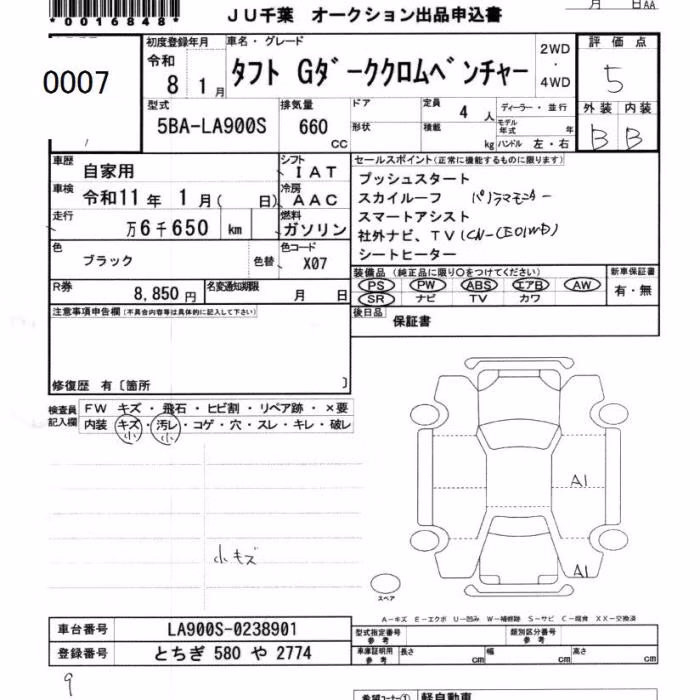 *0016848*
JU千葉 オークション出品申込書
月 日AA
0007
初度登録年月
令和
8 1月
車名・グレード
タフト Gダークロムベンチャー
2WD
・
4WD
評価点
5
外装 内装
B B
型式
5BA-LA900S
排気量
660
CC
ドア
形状
定員
4 人
積載
kg
ディーラー・並行
モデル年式 年
ハンドル 左・右
車歴
自家用
車検
令和11年 1月( 日)
走行
万6千650 km
色
ブラック
色替
シフト
IAT
冷房
AAC
燃料
ガソリン
色コード
X07
R券
8,850円
名変通知期限
月 日
セールスポイント(正常に機能するものに限ります)
プッシュスタート
スカイルーフ パノラマモニター
スマートアシスト
社外ナビ、TV(CN-CE01WD)
シートヒーター
装備品 (純正品に限り○をつけてください)
PS PW ABS エアB AW
SR ナビ TV カワ
新車保証書
有・無
後日品
保証書
注意事項申告欄(不具合内容等は具体的に記入して下さい)
修復歴 有〔箇所 〕
検査員記入欄
FW キズ・飛石・ヒビ割・リペア跡・×要
内装 キズ・汚レ・コゲ・穴・スレ・キレ・破レ
小 小
小キズ
A1
A1
スペア
A-キズ E-エクボ U-凹み W-補修跡 S-サビ C-腐食 XX-交換済
車台番号
LA900S-0238901
登録番号
とちぎ 580 や 2774
型式指定番号
参考
類別区分番号
参考
車庫証明用
参考
長さ cm
幅 cm
高さ cm
9
希望コーナー①
軽自動車